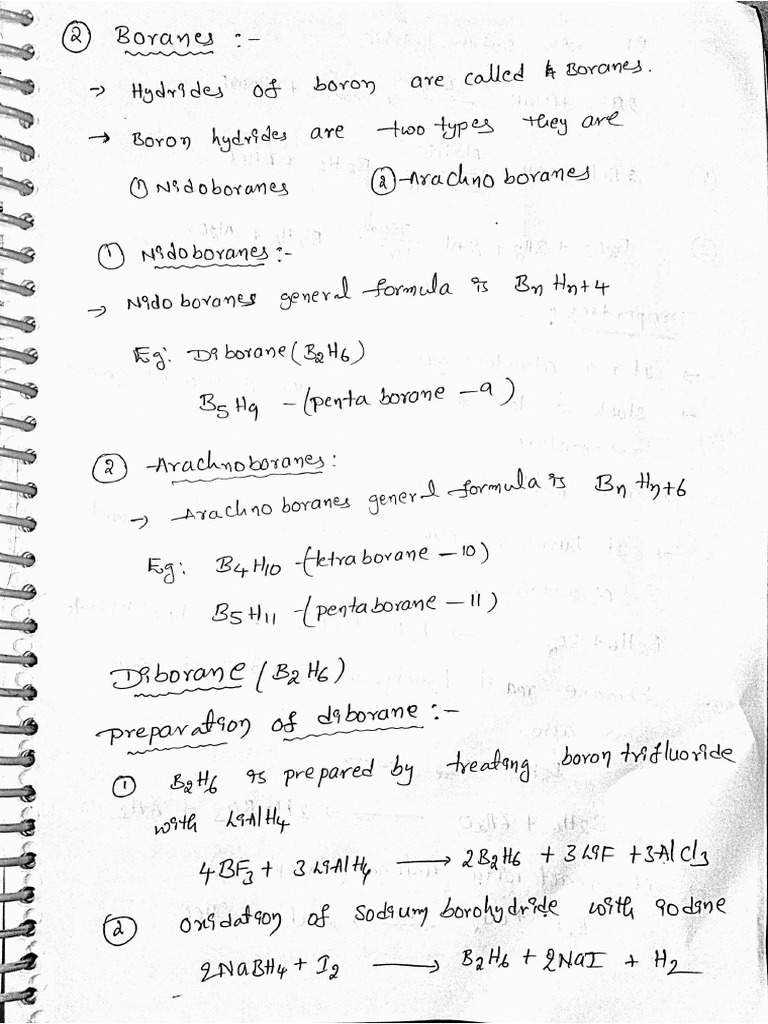 ② Boranes :-
→ Hydrides of boron are called Boranes.
→ Boron hydrides are two types they are
① Nidoboranes ② Arachno boranes
① Nidoboranes :-
→ Nido boranes general formula is BnHn+4
Eg: Diborane (B2H6)
B5H9 - (penta borane - 9)
② Arachnoboranes :
→ Arachno boranes general formula is BnHn+6
Eg: B4H10 - (tetraborane - 10)
B5H11 - (pentaborane - 11)
Diborane (B2H6)
preparation of diborane :-
① B2H6 is prepared by treating boron trifluoride
with LiAlH4
4BF3 + 3LiAlH4 ⟶ 2B2H6 + 3LiF + 3AlCl3
② Oxidation of Sodium borohydride with iodine
2NaBH4 + I2 ⟶ B2H6 + 2NaI + H2